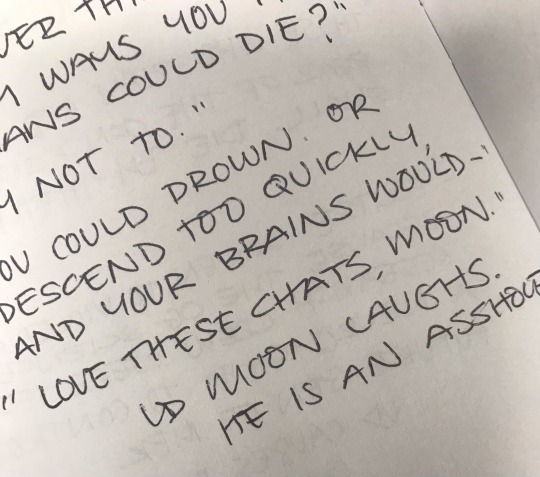 VER
WAYS YOU
ANS COULD DIE?"
Y NOT TO."
OU COULD DROWN. OR
DESCEND TOO QUICKLY,
AND YOUR BRAINS WOULD-"
"LOVE THESE CHATS, MOON."
UD MOON LAUGHS.
HE IS AN ASSHOLE